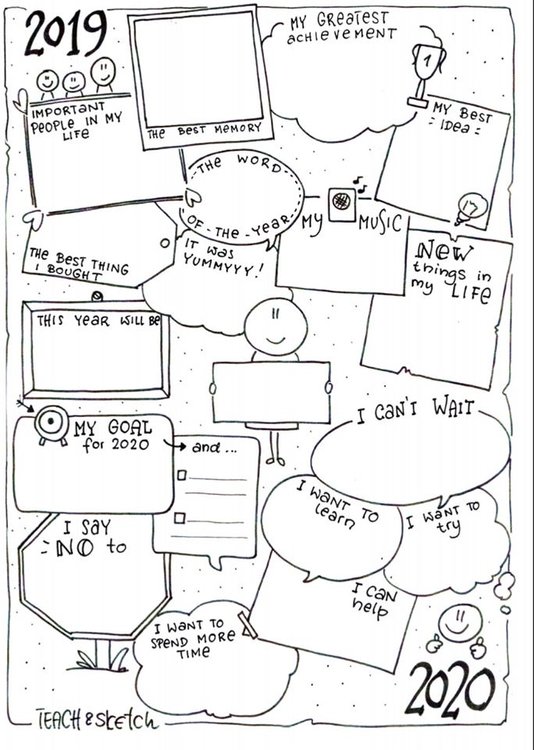 2019
MY GREATEST
achievement
1
IMPORTANT
PEOPLE IN MY
LIFE
THE BEST MEMORY
MY BEST
IDEA
THE WORD
OF-THE-YEAR
MY MUSIC
THE BEST THING
I BOUGHT
IT WAS
YUMMYYY!
NEW
things in
my LIFE
THIS YEAR WILL BE
MY GOAL
for 2020
and...
I CAN'T WAIT
I SAY
NO to
I WANT TO
learn
I WANT TO
try
I CAN
help
I WANT TO
SPEND MORE
TIME
2020
TEACH & sketch